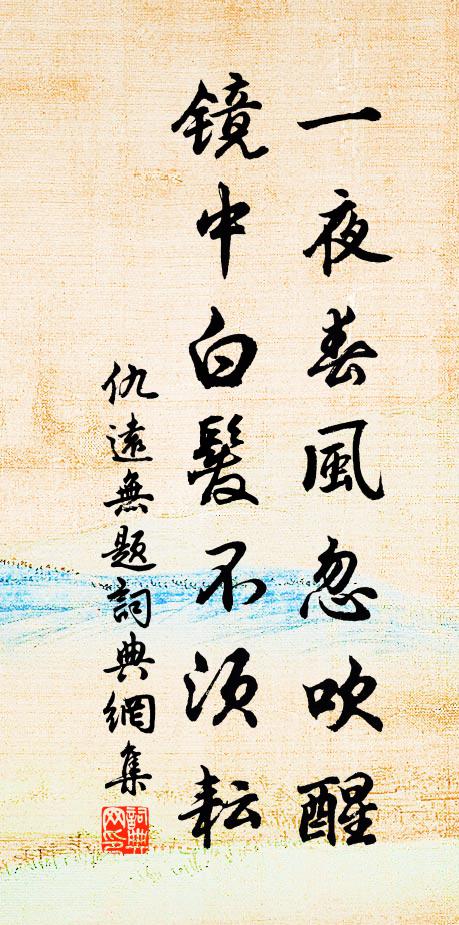 一夜春風忽吹醒
镜中白髮不須耘
仇遠無題詞典網集
詞典网印